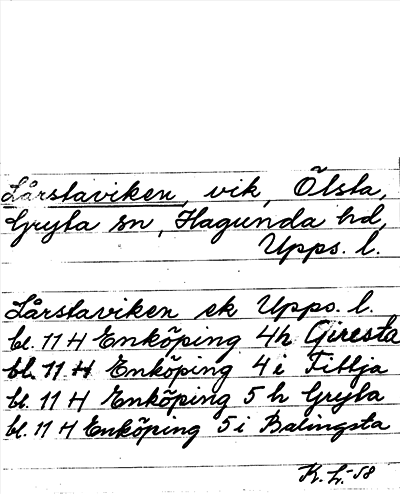 Lårstaviken, vik, Ölsta,
Gryta sn, Hagunda hd,
Upps. l.
Lårstaviken ek Upps. l.
bl. 11 H Enköping 4h Giresta
bl. 11 H Enköping 4 i Fittja
bl. 11 H Enköping 5 h Gryta
bl. 11 H Enköping 5 i Balingsta
K. L. -58